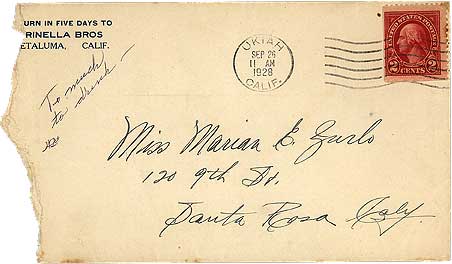 URN IN FIVE DAYS TO
RINELLA BROS
ETALUMA, CALIF.
Too much
to drink -
UKIAH
SEP 26
11 AM
1928
CALIF.
UNITED STATES POSTAGE
2 CENTS 2
Miss Marian E. Zurlo
120 9th St.
Santa Rosa Caly.